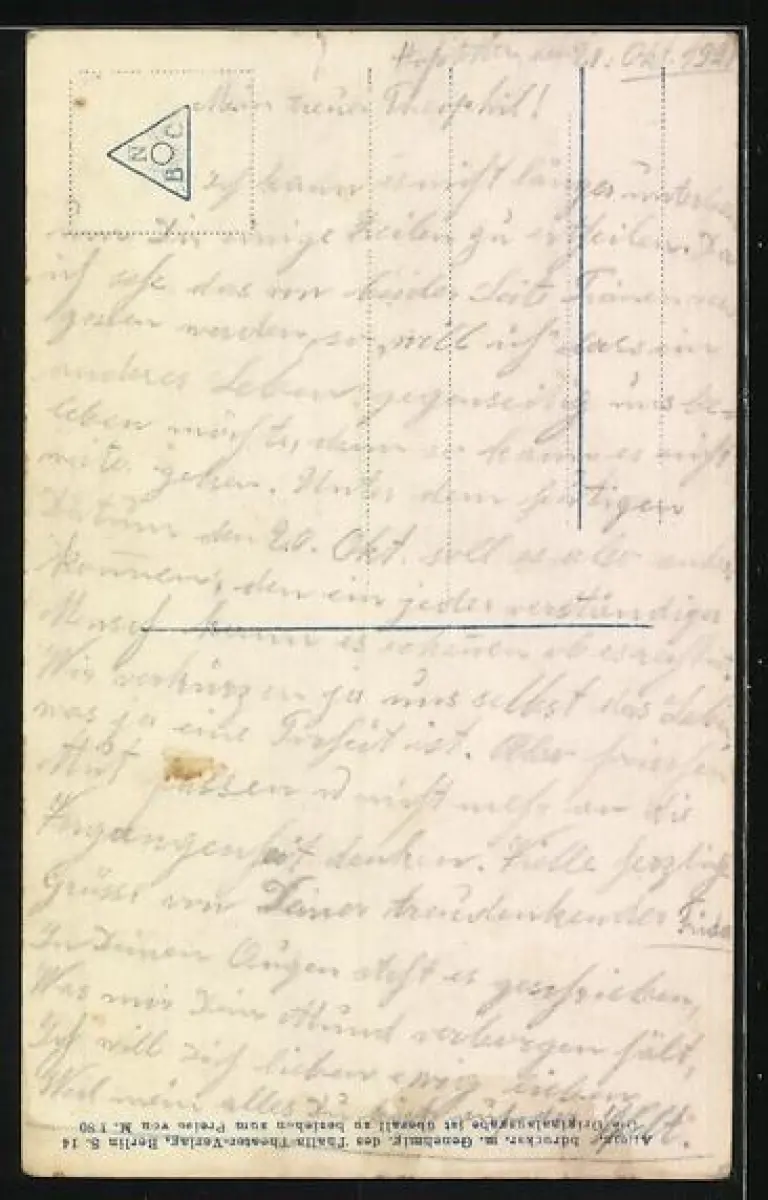 Okt. 192
Mein treuer Theophil!
N C
B O
Ich kann es nicht länger unterla
um Dir einige Zeilen zu erteilen. Da
ich sehe das von beider Seite Tränen ver
gossen werden, so will ich das ein
anderes Leben, gegenseitig uns be-
leben möchte, denn so kann es nicht
weiter gehen. Unter dem heutigen
Datum den 20. Okt. soll es also anders
kommen, den ein jeder verständiger
Mensch kann es
Wir verkürzen ja uns selbst das Leben
was ja eine Torheit ist. Also frischen
Mut fassen u nicht mehr an die
Vergangenheit denken. Vielle herzliche
Grüsse von Deiner treudenkender Frida
In Deinen Augen steht es geschrieben,
Was mir Dein Mund verborgen hält,
Ich will Dich lieben ewig lieben
Weil mein alles Du
Alleiniges Abdrucksr. m. Genehmig. des Thalia-Theater-Verlag, Berlin S. 14
Die Originalausgabe ist überall zu beziehen zum Preise von M. 1.80